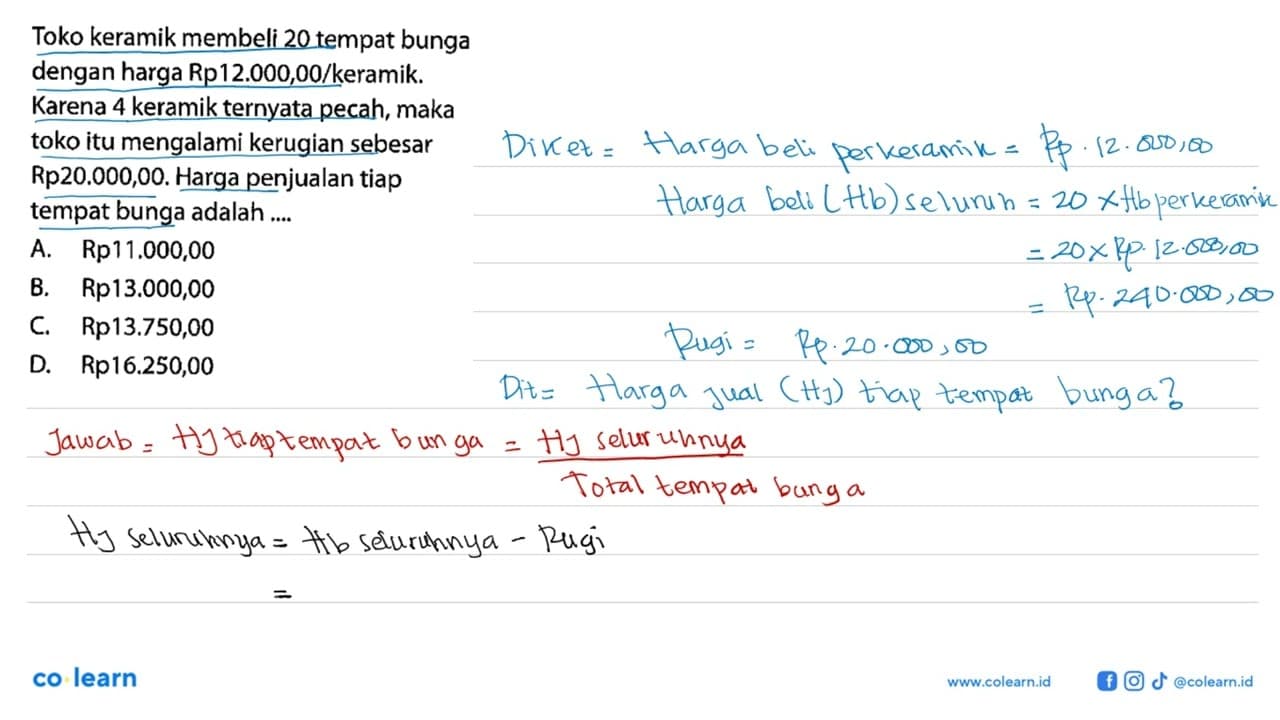 Toko keramik membeli 20 tempat bunga
dengan harga Rp12.000,00/keramik.
Karena 4 keramik ternyata pecah, maka
toko itu mengalami kerugian sebesar
Rp20.000,00. Harga penjualan tiap
tempat bunga adalah ....
A. Rp11.000,00
B. Rp13.000,00
C. Rp13.750,00
D. Rp16.250,00
Diket = Harga beli perkeramik = Rp. 12.000,00
Harga beli (Hb) seluruh = 20 x Hb perkeramik
= 20 x Rp. 12.000,00
= Rp. 240.000,00
Rugi = Rp. 20.000,00
Dit = Harga jual (HJ) tiap tempat bunga?
Jawab = HJ tiap tempat bunga = HJ seluruhnya
Total tempat bunga
HJ seluruhnya = Hb seluruhnya - Rugi
=
co learn
www.colearn.id
@colearn.id